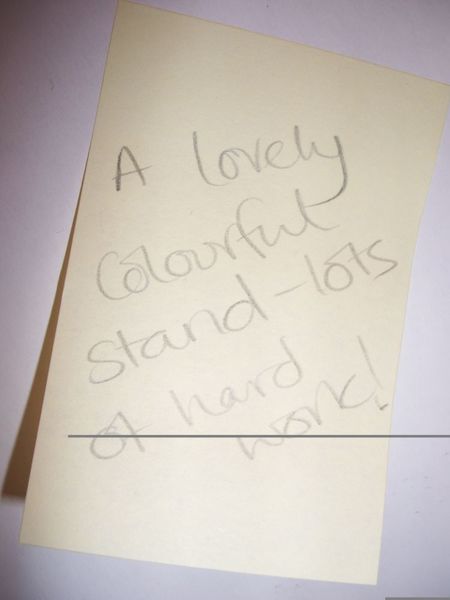 A lovely
Colourful
stand-lots
of hard
work!